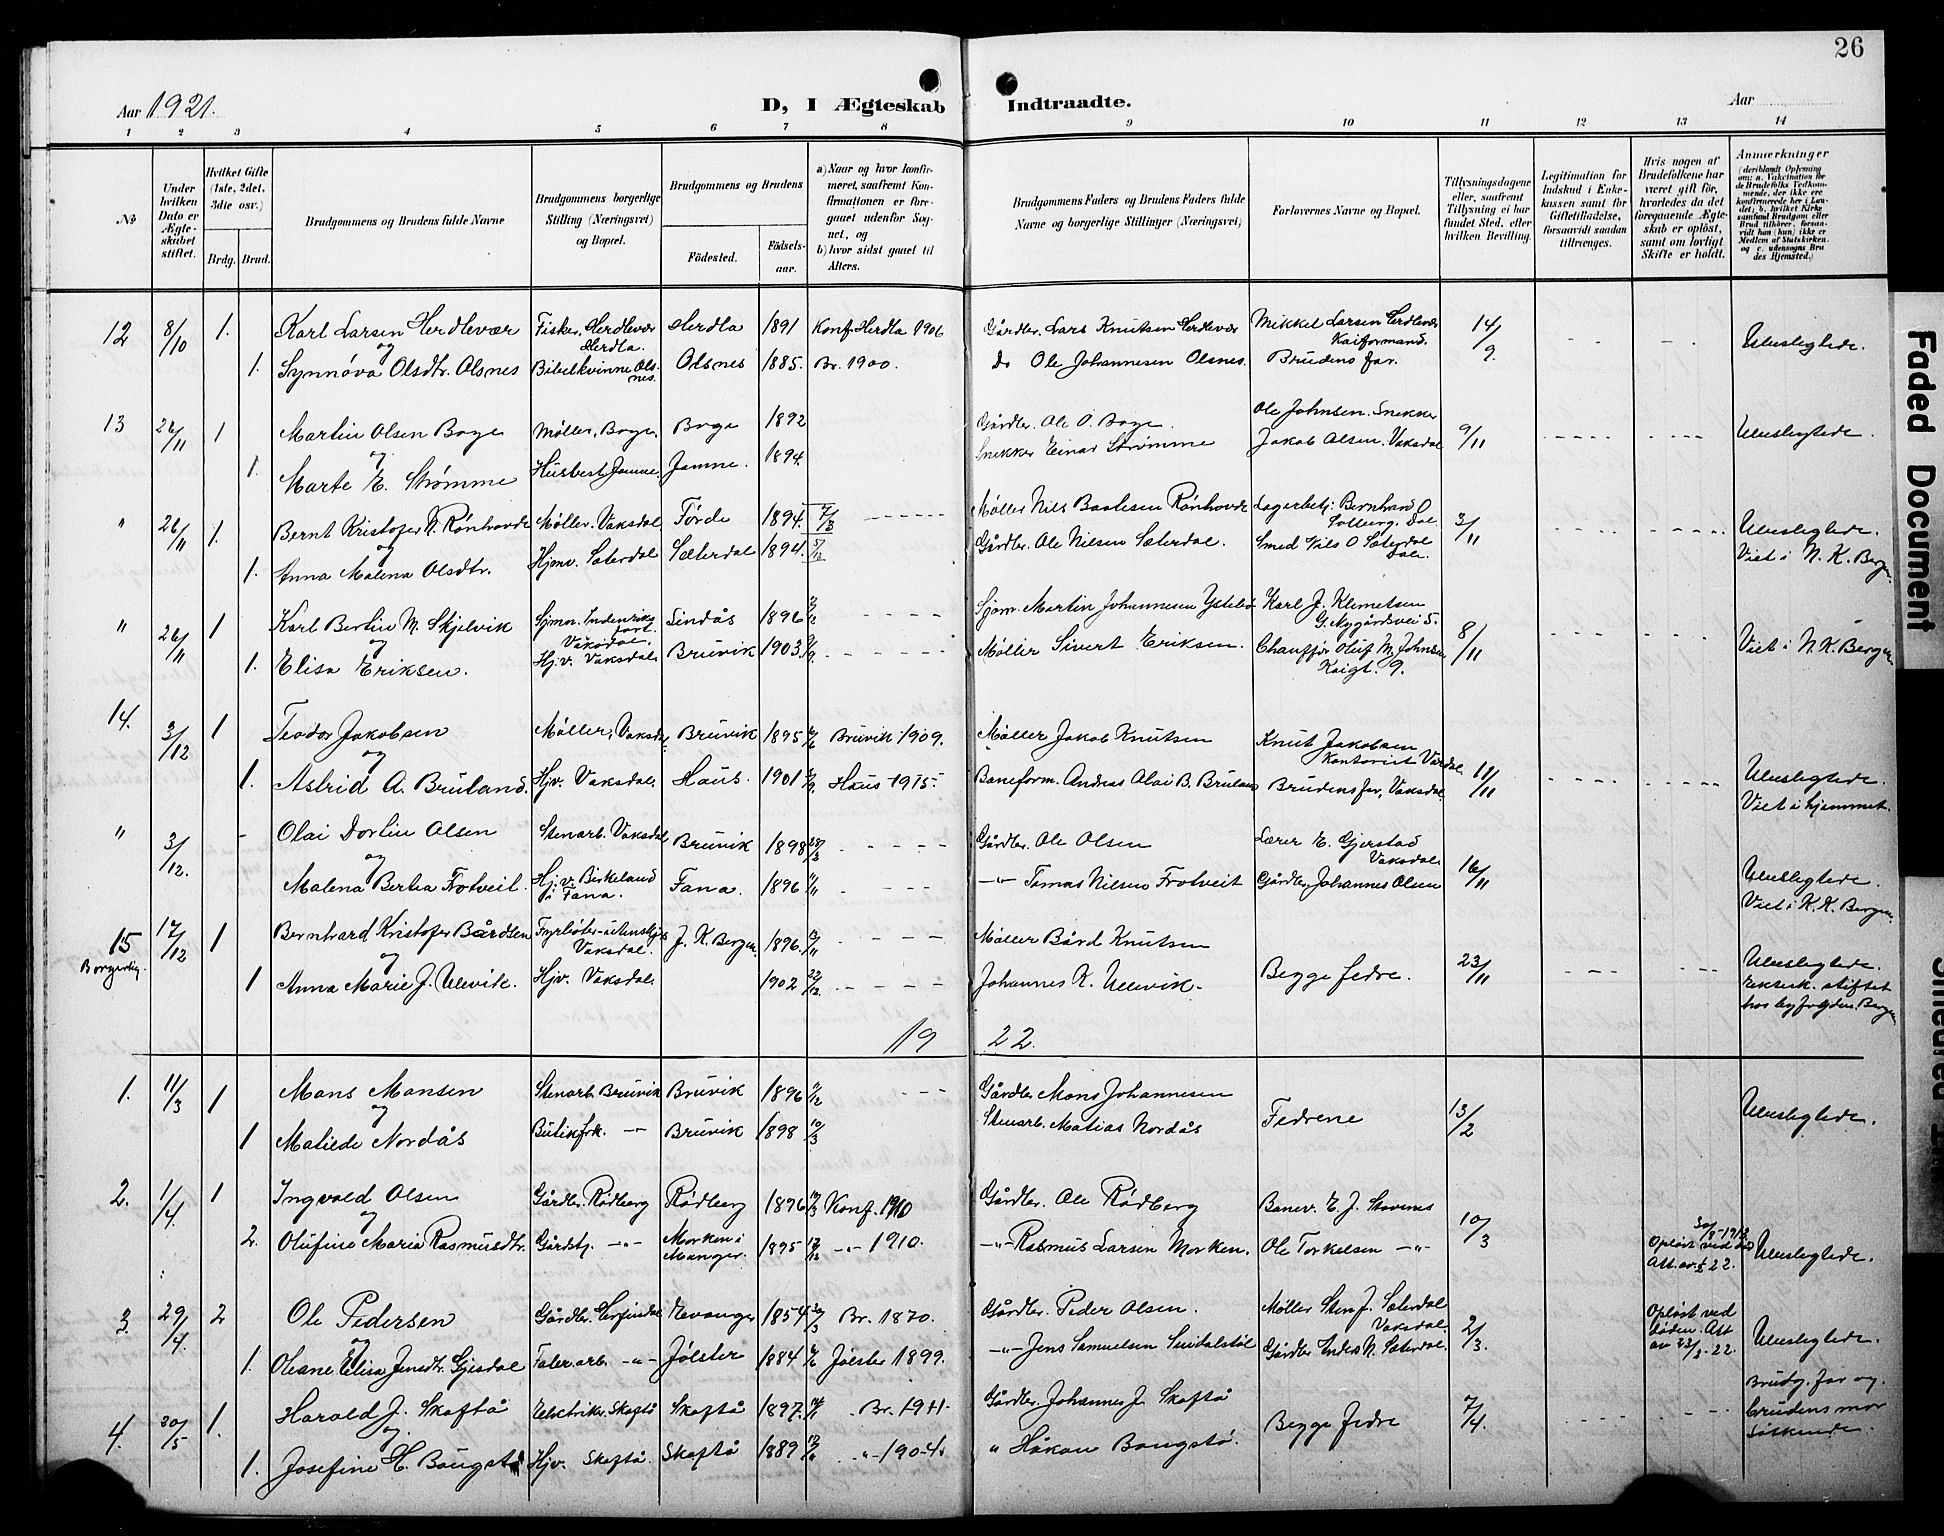 26
Aar 1921.
D, I Ægteskab Indtraadte.
Aar
1 2 3 4 5 6 7 8 9 10 11 12 13 14
No
Under hvilken Dato er Ægteskabet stiftet.
Hvilket Gifte (1ste, 2det, 3dte osv.)
Brdg. Brud.
Brudgommens og Brudens fulde Navne
Brudgommens borgerlige Stilling (Næringsvei) og Bopæl.
Brudgommens og Brudens
Födested.
Födselsaar.
a) Naar og hvor konfirmeret, saafremt Konfirmationen er foregaaet udenfor Sognet, og
b) hvor sidst gaaet til Alters.
Brudgommens Faders og Brudens Faders fulde Navne og borgerlige Stillinger (Næringsvei)
Forlovernes Navne og Bopæl.
Tillysningsdagene eller, saafremt Tillysning ei har fundet Sted, efter hvilken Bevilling.
Legitimation for Indskud i Enkekassen samt for Giftetilladelse, forsaavidt saadan tiltrænges.
Hvis nogen af Brudefolkene har været gift för, hvorledes da det foregaaende Ægteskab er oplöst, samt om lovligt Skifte er holdt.
Anmærkninger
(deriblandt Oplysning om: a. Vakcination for de Brudefolks Vedkommende, der ikke ere konfirmerede her i Landet; b. hvilket Kirkesamfund Brudgom eller Brud tilhører, forsaavidt han (hun) ikke er Medlem af Statskirken, og c. udensogns Brudes Hjemsted.)
12 8/10 1. Karl Larsen Herdlevær Fisker, Herdlevær Herdla. Herdla 1891 Konf. Herdla 1906 Gårdbr. Lars Knutsen Herdlevær Mikkel Larsen Herdlevær Kaiformand. 14/9 Ubeslegtede.
og
1. Synnøva Olsdtr. Olsnes Bibelkvinne Olsnes. Olsnes 1885. Br. 1900. Do Ole Johannesen Olsnes. Brudens far.
13 26/11 1 Martin Olsen Boge Møller, Boge. Boge 1892 Gårdbr. Ole O. Boge. Ole Johnsen. Snekker 9/11 Ubeslegtede.
og
1. Marte E. Strømme Husbest. Jamne. Jamne. 1894. Snekker Einar Strømme Jakob Olsen. Vaksdal
" 26/11 1. Bernt Kristofer N. Rønhovde Møller. Vaksdal Førde 1894. 7/3 Møller Nils Bastesen Rønhovde Lagerbetj. Bernhard O Solberg. Dal 3/11 Ubeslegtede.
og
1. Anna Malena Olsdtr. Hjmv. Sæterdal Sæterdal 1894. 5/12 Gårdbr. Ole Nilsen Sæterdal. Smed Nils O Sæterdal Dale. Viet i N. K. Bergen.
" 26/11 1 Karl Bertin M. Skjelvik Sjmn. Indenriks fart. Vaksdal. Lindås 1896 Sjøm. Martin Johannesen Ystebø Karl J. Klemetsen G. Nygårdsvei 5. 8/11 Viet i N. K. Bergen
og
1. Elisa Eriksen. Hj.v. Vaksdal. Bruvik 1903. Møller Sivert Eriksen. Chauffør Oluf M. Johnsen Kaigt. 9.
14. 3/12 1 Teodor Jakobsen Møller, Vaksdal. Bruvik 1895 Bruvik 1909. Møller Jakob Knutsen Knut Jakobsen Kontorist Vaksdal. 11/11 Ubeslegtede.
og
1. Astrid A. Bruland. Hjv. Vaksdal. Haus. 1901 Haus 1915. Baneform. Andreas Olai B. Bruland Brudens far, Vaksdal. Viet i hjemmet.
" 3/12. - Olai Dortin Olsen Stenarb. Vaksdal Bruvik 1898 28/3 Gårdbr. Ole Olsen Lærer E. Gjerstad Vaksdal. 16/11 Ubeslegtede.
og
Malena Bertea Frotveit. Hj.v. Birkeland i Fana. Fana. 1896 11/11 -"- Tomas Nilsen Frotveit Gårdbr. Johannes Olsen Viet i K. K. Bergen.
15 Borgerlig. 17/12 1 Bernhard Kristofer Bårdsen Vaksdal. J. K. Bergen. 1896. 13/11 Møller Bård Knutsen Begge fedre. 23/11 Ubeslegtede.
og
1 Anna Marie J. Ulevik. Hjv. Vaksdal. 1902 22/12. Johannes K. Ulevik. Ektesk. stiftet hos byfogden. Bergen
19 22.
1. 11/3 1 Mons Monsen Stenarb. Bruvik Bruvik 1896 Gårdbr. Mons Johannesen Fedrene 13/2 Ubeslegtede.
og
1 Matilde Nordås Butikfrk. -"- Bruvik 1898 10/3 Stenarb. Matias Nordås
2. 1/4 1 Ingvald Olsen Gårdbr. Rødberg Rødberg 1896 Konf. 1910 Gårdbr. Ole Rødberg Banev. E. J. Stavenes 10/3
og
2. Olufine Maria Rasmusdtr. Gårdstj. -"- Morken i Manger. 1895 -"- 1910. -"- Rasmus Larsen Morken. Ole Torkelsen -"- Opløst ved Att. av 22. Ubeslegtede.
3. 29/4 2 Ole Pedersen Gårdbr. Herfindal Evanger 1854 Br. 1870. Gårdbr. Peder Olsen. Møller Sten J. Sæterdal Vaksdal. 2/3. Opløst ved døden. Att av 23/3-22. Ubeslegtede.
og
1. Oleane Elisa Jensdtr. Gjesdal -"- Jølster 1884 Jølster 1899. -"- Jens Samuelsen Gårdbr. Anders N. Sæterdal.
4. 20/5 1. Harald J. Skaftå Elektriker. Skaftå Skaftå 1897. Br. 1911. Gårdbr. Johannes J. Skaftå Begge fedre 7/4. Brudg. far og brudens mor søskende.
og
1. Josefine H. Bougstø Hjv. Skaftå. Skaftå 1889 " 1904. " Håkon Bougstø.
Faded Document